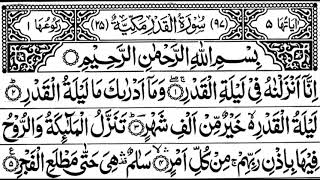 اٰيَاتُهَا ٥ (٩٧) سُوْرَةُ الْقَدْرِ مَكِّيَّةٌ (٢٥) رُكُوْعُهَا ١
بِسْمِ اللّٰهِ الرَّحْمٰنِ الرَّحِيْمِ
اِنَّاۤ اَنْزَلْنٰهُ فِىْ لَيْلَةِ الْقَدْرِ ۝١ وَمَاۤ اَدْرٰىكَ مَا لَيْلَةُ الْقَدْرِ ۝٢
لَيْلَةُ الْقَدْرِ ۙ خَيْرٌ مِّنْ اَلْفِ شَهْرٍ ۝٣ تَنَزَّلُ الْمَلٰٓئِكَةُ وَالرُّوْحُ
فِيْهَا بِاِذْنِ رَبِّهِمْ ۚ مِنْ كُلِّ اَمْرٍ ۝٤ سَلٰمٌ ۛ هِىَ حَتّٰى مَطْلَعِ الْفَجْرِ ۝٥